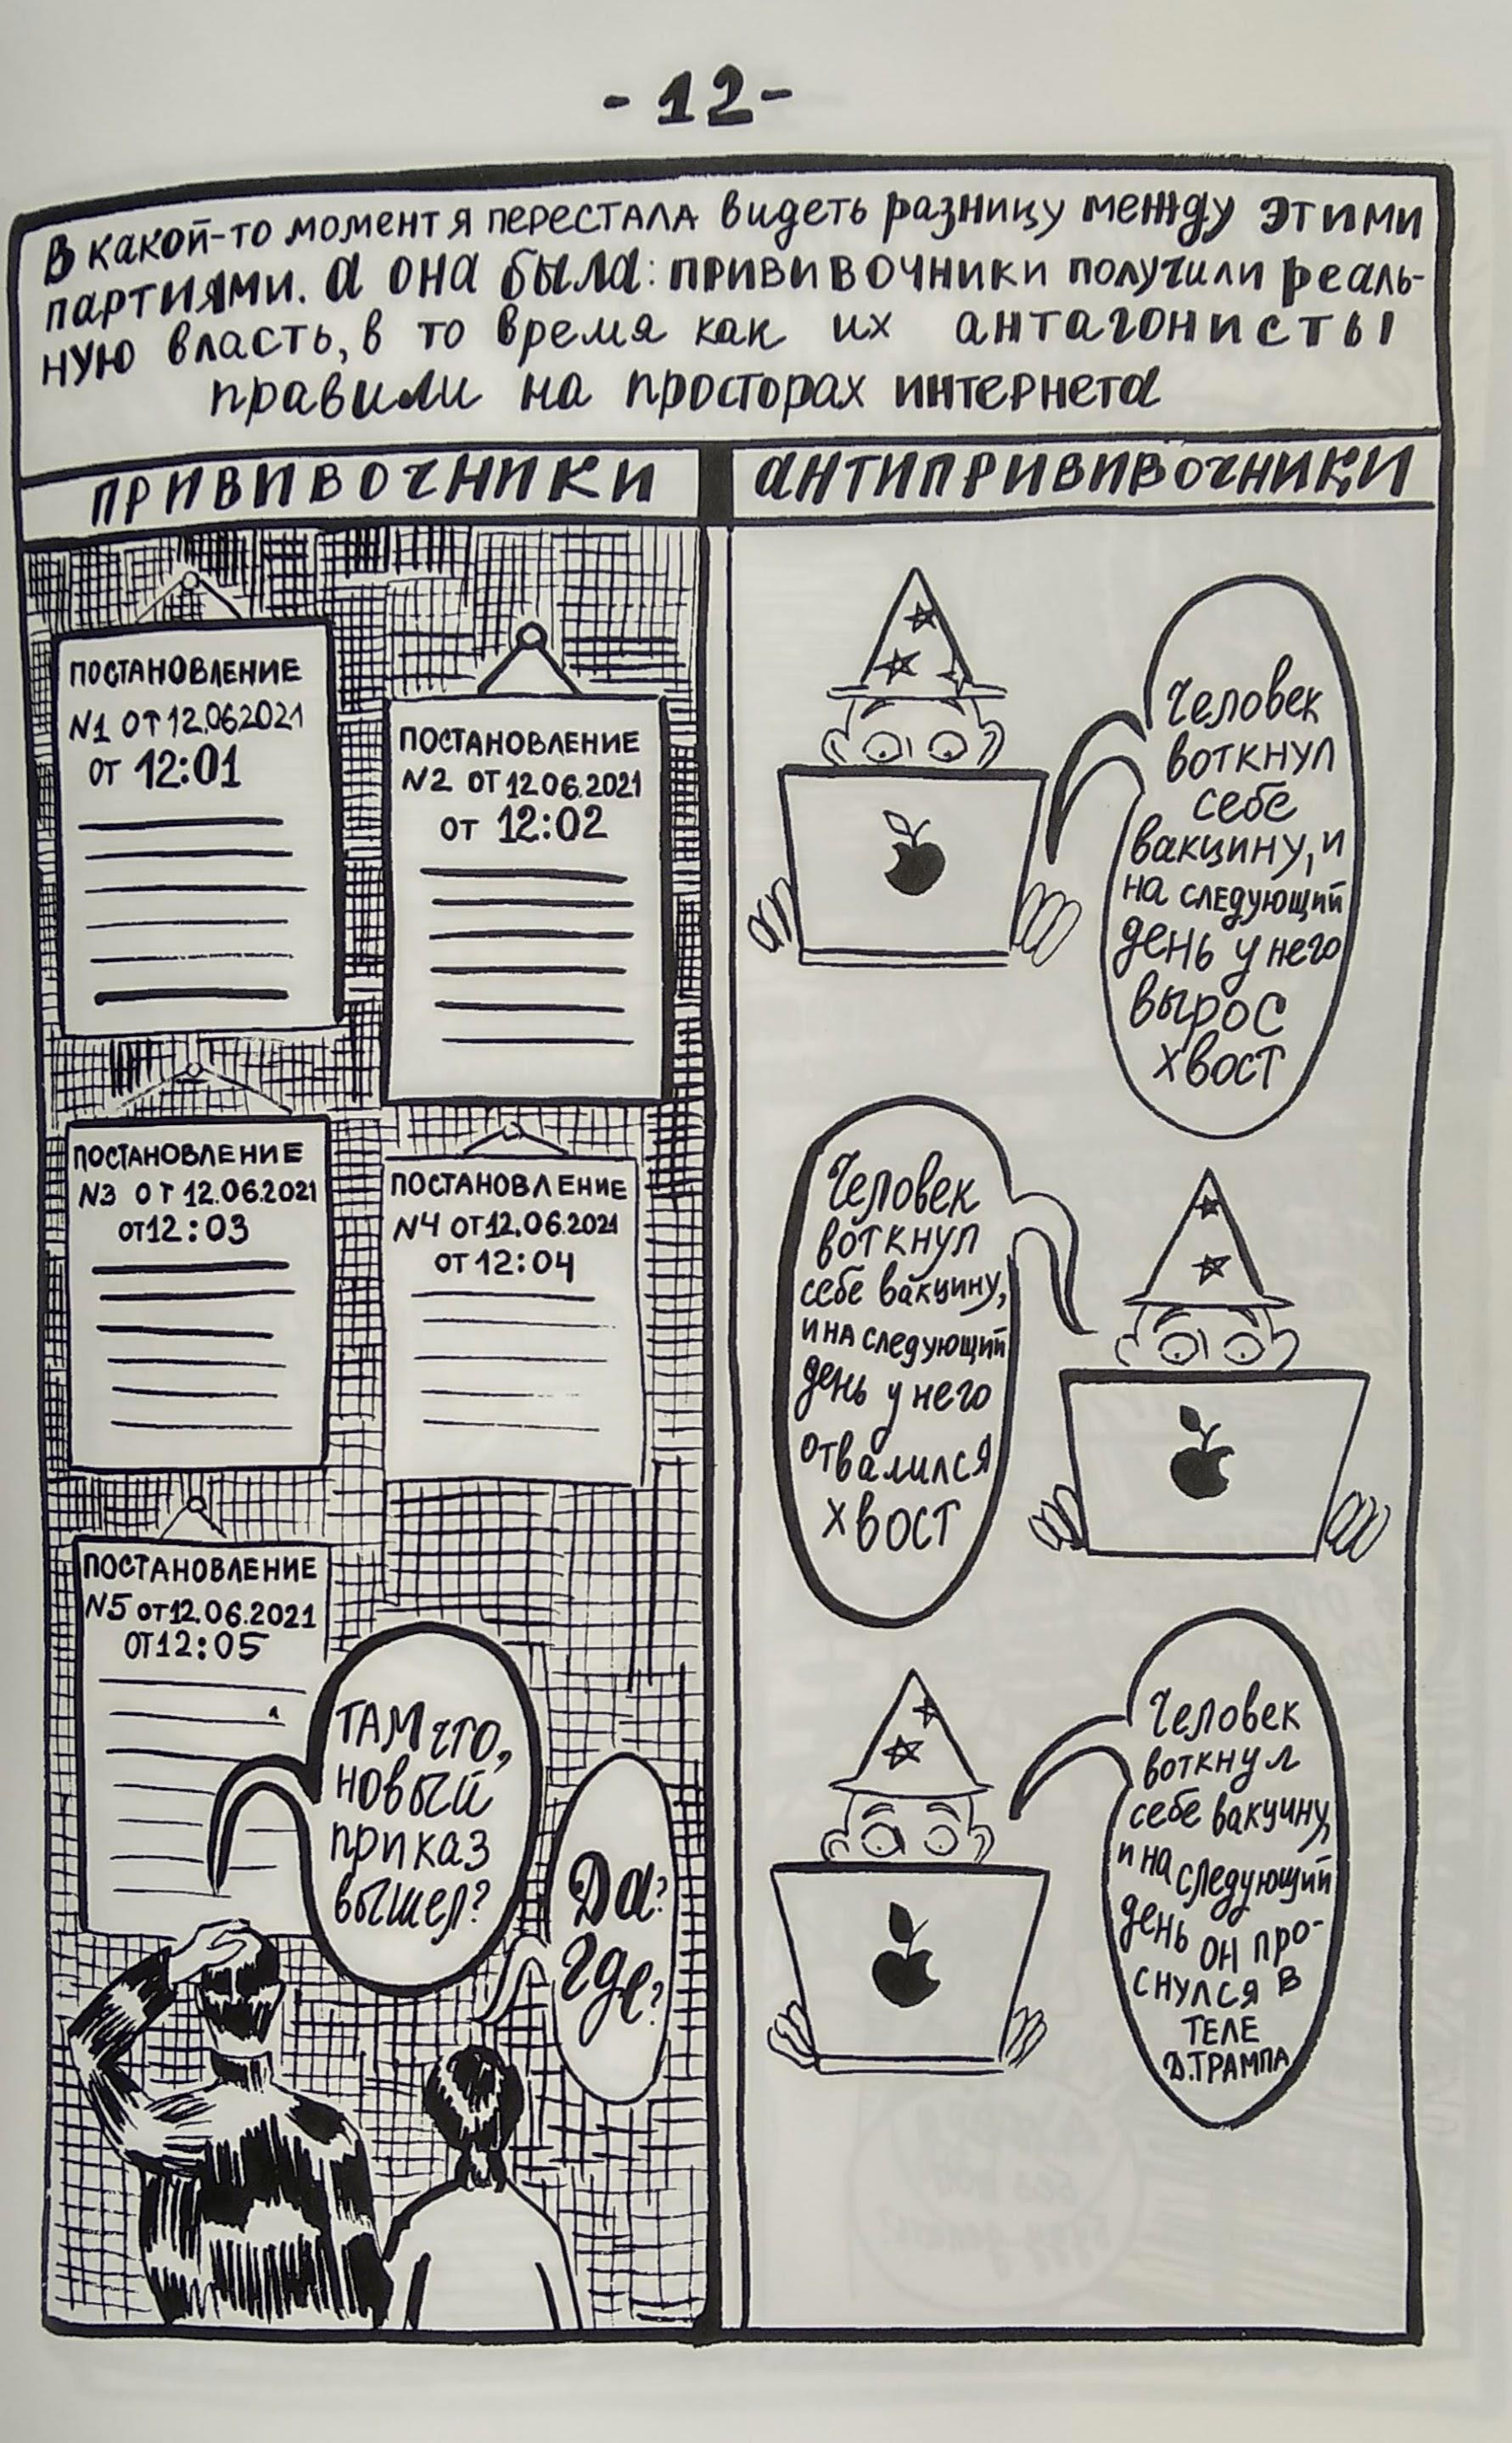 - 12 -
В какой-то момент я перестала видеть разницу между этими
партиями. а она была: прививочники получили реаль-
ную власть, в то время как их антагонисты
правили на просторах интернета
ПРИВИВОЧНИКИ
АНТИПРИВИВОЧНИКИ
ПОСТАНОВЛЕНИЕ
N1 ОТ 12.062021
ОТ 12:01
ПОСТАНОВЛЕНИЕ
N2 ОТ 12.06.2021
ОТ 12:02
ПОСТАНОВЛЕНИЕ
N3 ОТ 12.06.2021
ОТ 12:03
ПОСТАНОВЛЕНИЕ
N4 ОТ 12.06.2021
ОТ 12:04
ПОСТАНОВЛЕНИЕ
N5 ОТ 12.06.2021
ОТ 12:05
ТАМ что,
новый
приказ
вышел?
Да?
Где?
Человек
воткнул
себе
вакцину, и
на следующий
день у него
вырос
хвост
Человек
воткнул
себе вакцину,
и на следующий
день у него
отвалился
хвост
Человек
воткнул
себе вакцину,
и на следующий
день он про-
снулся в
теле
Д. Трампа